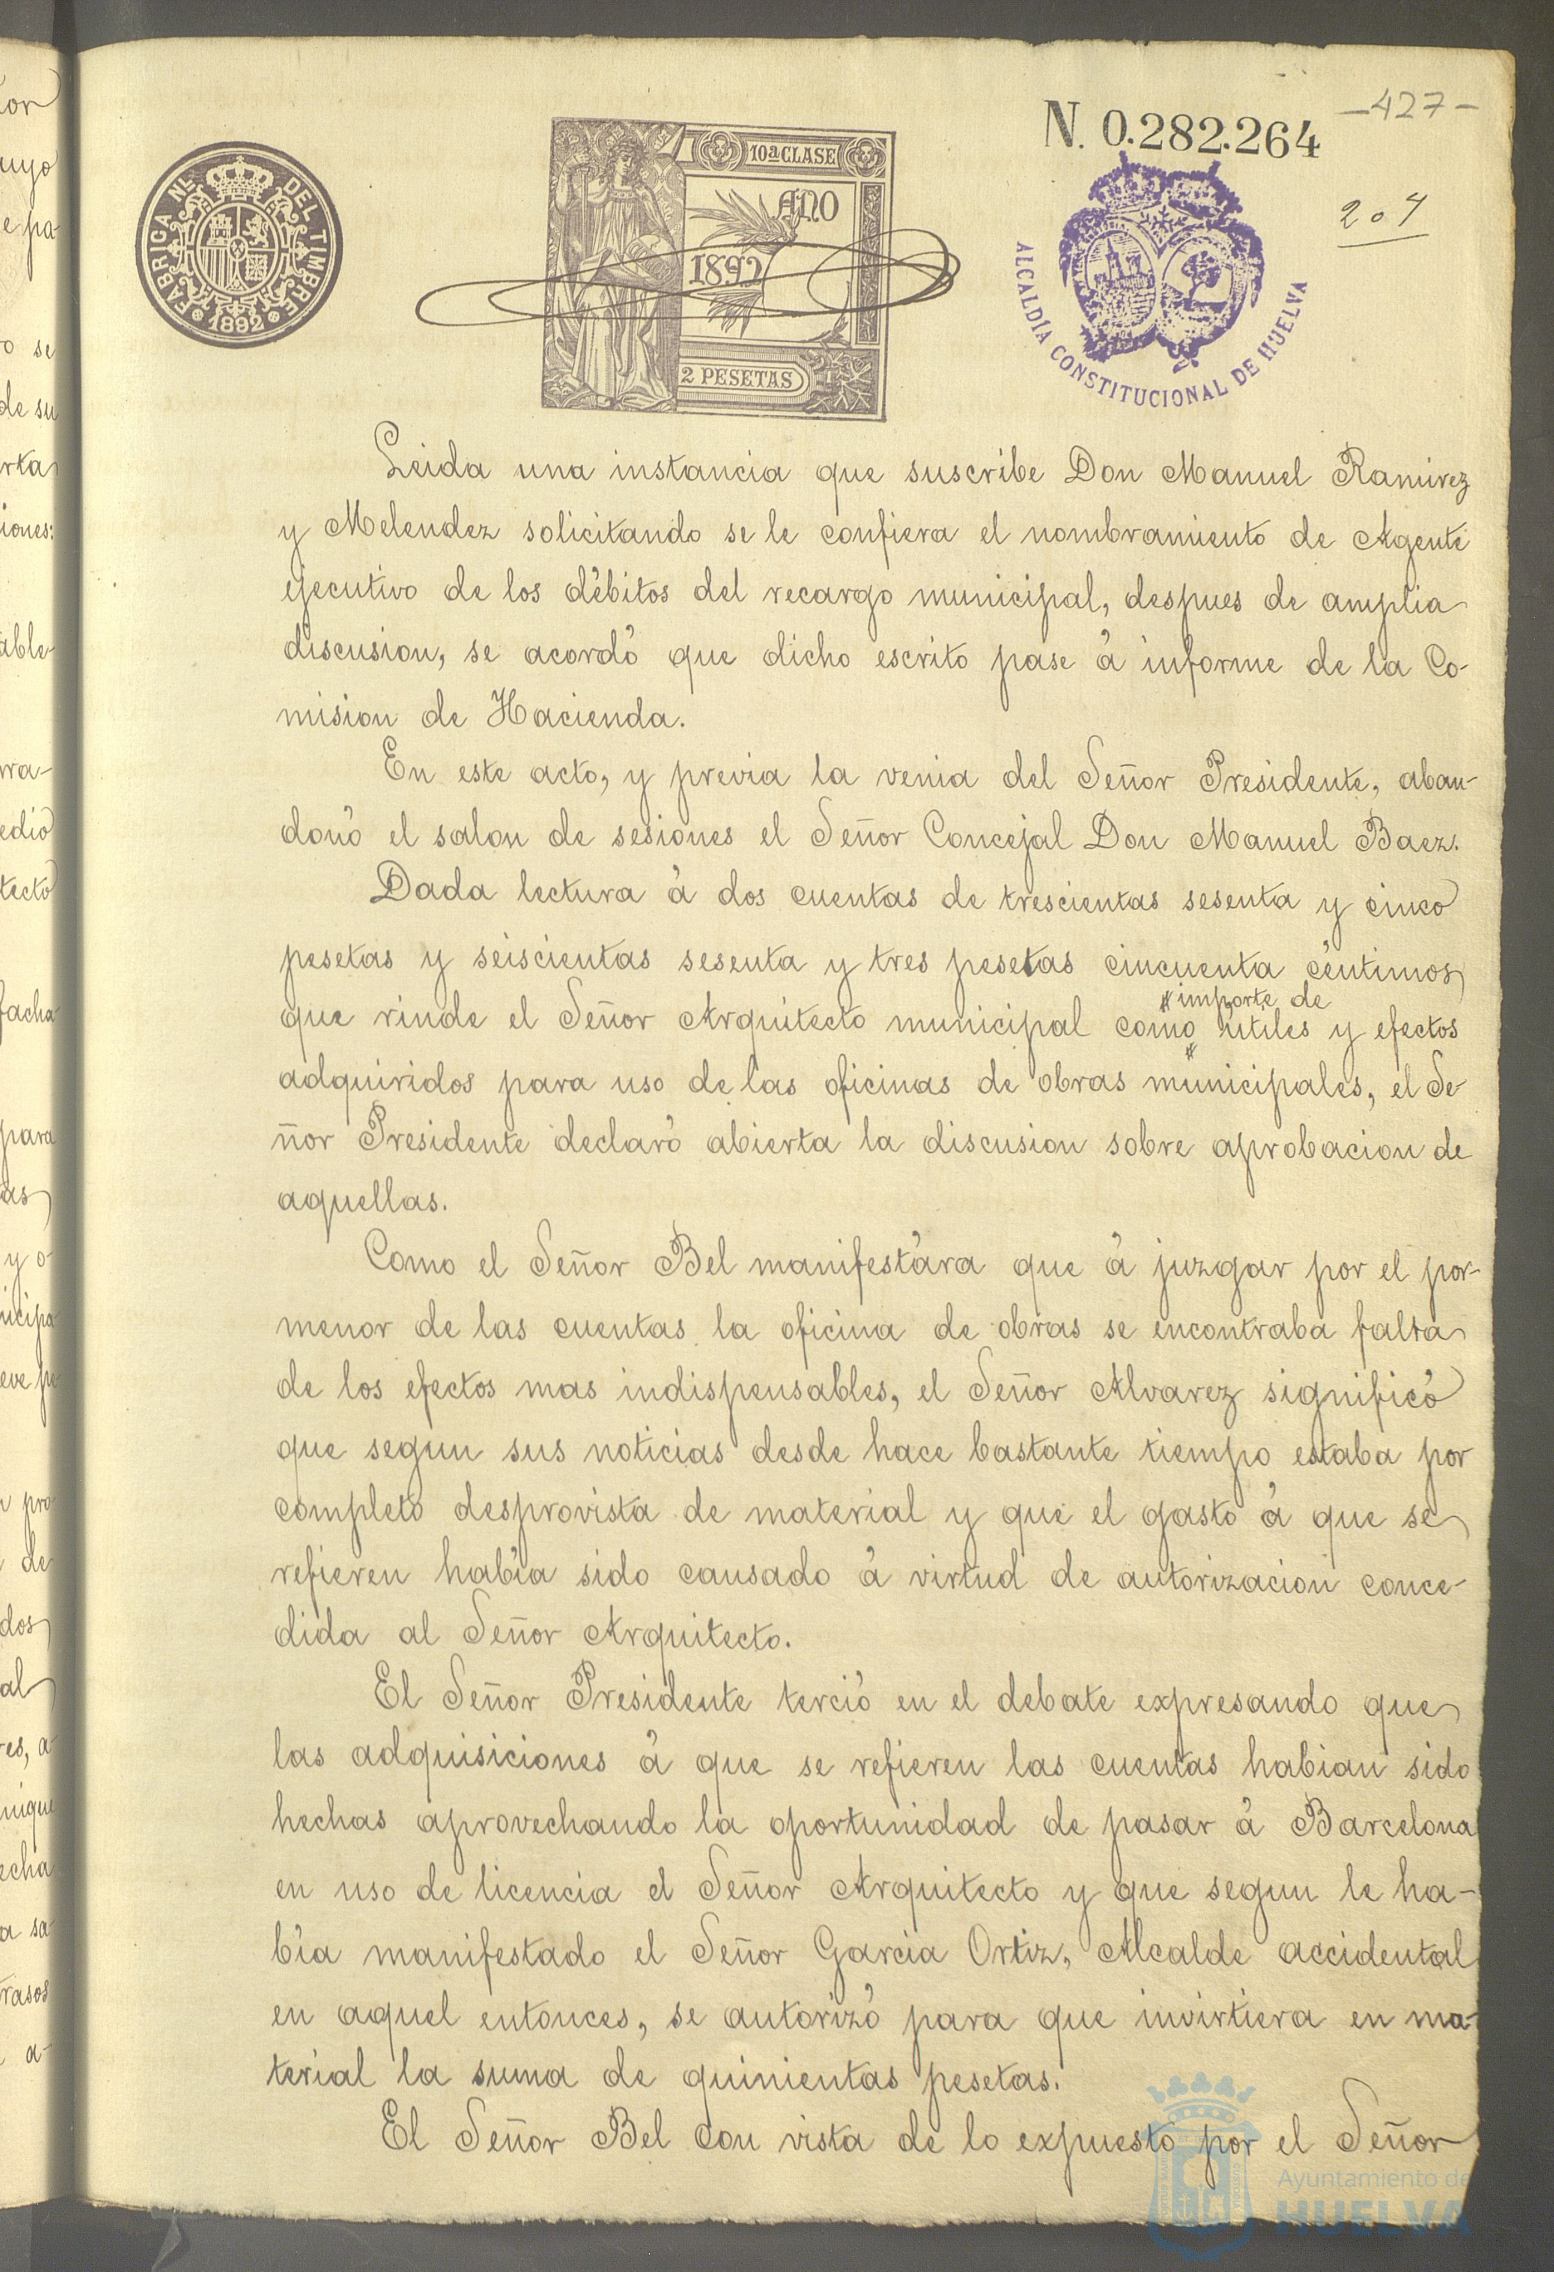 -427-
N. 0.282.264
207
FABRICA NL. DEL TIMBRE
1892
10ª CLASE
AÑO
1892
2 PESETAS
ALCALDÍA CONSTITUCIONAL DE HUELVA
Leida una instancia que suscribe Don Manuel Ramirez
y Melendez solicitando se le confiera el nombramiento de Agente
ejecutivo de los débitos del recargo municipal, despues de amplia
discusion, se acordó que dicho escrito pase á informe de la Co-
mision de Hacienda.
En este acto, y previa la venia del Señor Presidente, aban-
donó el salon de sesiones el Señor Concejal Don Manuel Baez.
Dada lectura á dos cuentas de trescientas sesenta y cinco
pesetas y seiscientas sesenta y tres pesetas cincuenta céntimos
# importe de
que rinde el Señor Arquitecto municipal como # útiles y efectos
adquiridos para uso de las oficinas de obras municipales, el Se-
ñor Presidente declaró abierta la discusion sobre aprobacion de
aquellas.
Como el Señor Bel manifestára que á juzgar por el por-
menor de las cuentas la oficina de obras se encontraba falta
de los efectos mas indispensables, el Señor Alvarez significó
que segun sus noticias desde hace bastante tiempo estaba por
completo desprovista de material y que el gasto á que se
refieren había sido causado á virtud de autorizacion conce-
dida al Señor Arquitecto.
El Señor Presidente terció en el debate expresando que
las adquisiciones á que se refieren las cuentas habian sido
hechas aprovechando la oportunidad de pasar á Barcelona
en uso de licencia el Señor Arquitecto y que segun le ha-
bía manifestado el Señor García Ortiz, Alcalde accidental
en aquel entonces, se autorizó para que invirtiera en ma-
terial la suma de quinientas pesetas.
El Señor Bel con vista de lo expuesto por el Señor
Ayuntamiento de
HUELVA